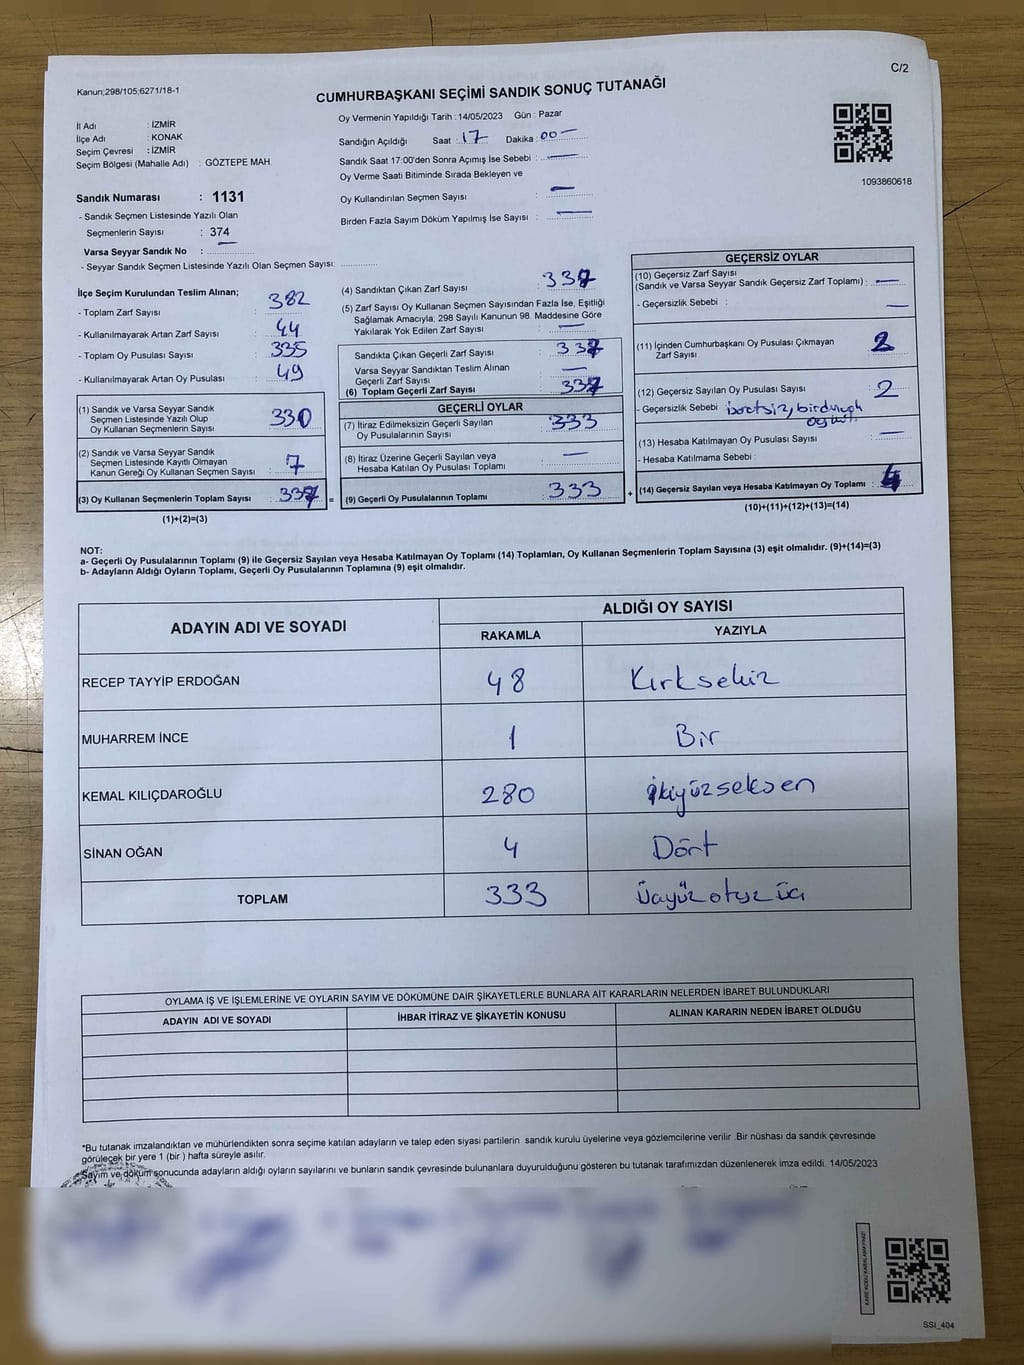 C/2
Kanun;298/105;6271/18-1
CUMHURBAŞKANI SEÇİMİ SANDIK SONUÇ TUTANAĞI
İl Adı : İZMİR
İlçe Adı : KONAK
Seçim Çevresi : İZMİR
Seçim Bölgesi (Mahalle Adı) : GÖZTEPE MAH.
Sandık Numarası : 1131
- Sandık Seçmen Listesinde Yazılı Olan
Seçmenlerin Sayısı : 374
Varsa Seyyar Sandık No : —
- Seyyar Sandık Seçmen Listesinde Yazılı Olan Seçmen Sayısı:
Oy Vermenin Yapıldığı Tarih : 14/05/2023 Gün : Pazar
Sandığın Açıldığı Saat : 17 Dakika : 00 —
Sandık Saat 17:00'den Sonra Açımış İse Sebebi : —
Oy Verme Saati Bitiminde Sırada Bekleyen ve
Oy Kullandırılan Seçmen Sayısı : —
Birden Fazla Sayım Döküm Yapılmış İse Sayısı : —
1093860618
İlçe Seçim Kurulundan Teslim Alınan;
- Toplam Zarf Sayısı : 382
- Kullanılmayarak Artan Zarf Sayısı : 44
- Toplam Oy Pusulası Sayısı : 335
- Kullanılmayarak Artan Oy Pusulası : 49
(1) Sandık ve Varsa Seyyar Sandık
Seçmen Listesinde Yazılı Olup
Oy Kullanan Seçmenlerin Sayısı : 330
(2) Sandık ve Varsa Seyyar Sandık
Seçmen Listesinde Kayıtlı Olmayan
Kanun Gereği Oy Kullanan Seçmen Sayısı : 7
(3) Oy Kullanan Seçmenlerin Toplam Sayısı : 337 =
(1)+(2)=(3)
(4) Sandıktan Çıkan Zarf Sayısı : 337
(5) Zarf Sayısı Oy Kullanan Seçmen Sayısından Fazla İse, Eşitliği
Sağlamak Amacıyla; 298 Sayılı Kanunun 98. Maddesine Göre
Yakılarak Yok Edilen Zarf Sayısı : —
Sandıkta Çıkan Geçerli Zarf Sayısı : 337
Varsa Seyyar Sandıktan Teslim Alınan
Geçerli Zarf Sayısı : —
(6) Toplam Geçerli Zarf Sayısı : 337
GEÇERLİ OYLAR
(7) İtiraz Edilmeksizin Geçerli Sayılan
Oy Pusulalarının Sayısı : 333
(8) İtiraz Üzerine Geçerli Sayılan veya
Hesaba Katılan Oy Pusulası Toplamı : —
(9) Geçerli Oy Pusulalarının Toplamı : 333 +
GEÇERSİZ OYLAR
(10) Geçersiz Zarf Sayısı
(Sandık ve Varsa Seyyar Sandık Geçersiz Zarf Toplamı) : —
- Geçersizlik Sebebi : —
(11) İçinden Cumhurbaşkanı Oy Pusulası Çıkmayan
Zarf Sayısı : 2
(12) Geçersiz Sayılan Oy Pusulası Sayısı : 2
- Geçersizlik Sebebi
(13) Hesaba Katılmayan Oy Pusulası Sayısı : —
- Hesaba Katılmama Sebebi :
(14) Geçersiz Sayılan veya Hesaba Katılmayan Oy Toplamı : 4
(10)+(11)+(12)+(13)=(14)
NOT:
a- Geçerli Oy Pusulalarının Toplamı (9) ile Geçersiz Sayılan veya Hesaba Katılmayan Oy Toplamı (14) Toplamları, Oy Kullanan Seçmenlerin Toplam Sayısına (3) eşit olmalıdır. (9)+(14)=(3)
b- Adayların Aldığı Oyların Toplamı, Geçerli Oy Pusulalarının Toplamına (9) eşit olmalıdır.
ADAYIN ADI VE SOYADI
ALDIĞI OY SAYISI
RAKAMLA YAZIYLA
RECEP TAYYİP ERDOĞAN 48 Kırksekiz
MUHARREM İNCE 1 Bir
KEMAL KILIÇDAROĞLU 280 ikiyüzseksen
SİNAN OĞAN 4 Dört
TOPLAM 333 Üçyüzotuzüç
OYLAMA İŞ VE İŞLEMLERİNE VE OYLARIN SAYIM VE DÖKÜMÜNE DAİR ŞİKAYETLERLE BUNLARA AİT KARARLARIN NELERDEN İBARET BULUNDUKLARI
ADAYIN ADI VE SOYADI İHBAR İTİRAZ VE ŞİKAYETİN KONUSU ALINAN KARARIN NEDEN İBARET OLDUĞU
*Bu tutanak imzalandıktan ve mühürlendikten sonra seçime katılan adayların ve talep eden siyasi partilerin sandık kurulu üyelerine veya gözlemcilerine verilir .Bir nüshası da sandık çevresinde
görülecek bir yere 1 (bir ) hafta süreyle asılır.
Sayım ve döküm sonucunda adayların aldığı oyların sayılarını ve bunların sandık çevresinde bulunanlara duyurulduğunu gösteren bu tutanak tarafımızdan düzenlenerek imza edildi. 14/05/2023
KARE KODU KARALAMAYINIZ!
SSİ_404